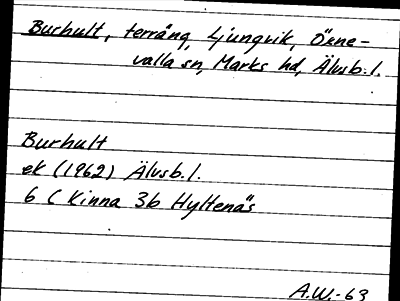 Burhult, terräng, Ljungvik, Öxne-
valla sn, Marks hd, Älvsb. l.
Burhult
ek (1962) Älvsb. l.
6 C Kinna 3b Hyltenäs
A.W.-63